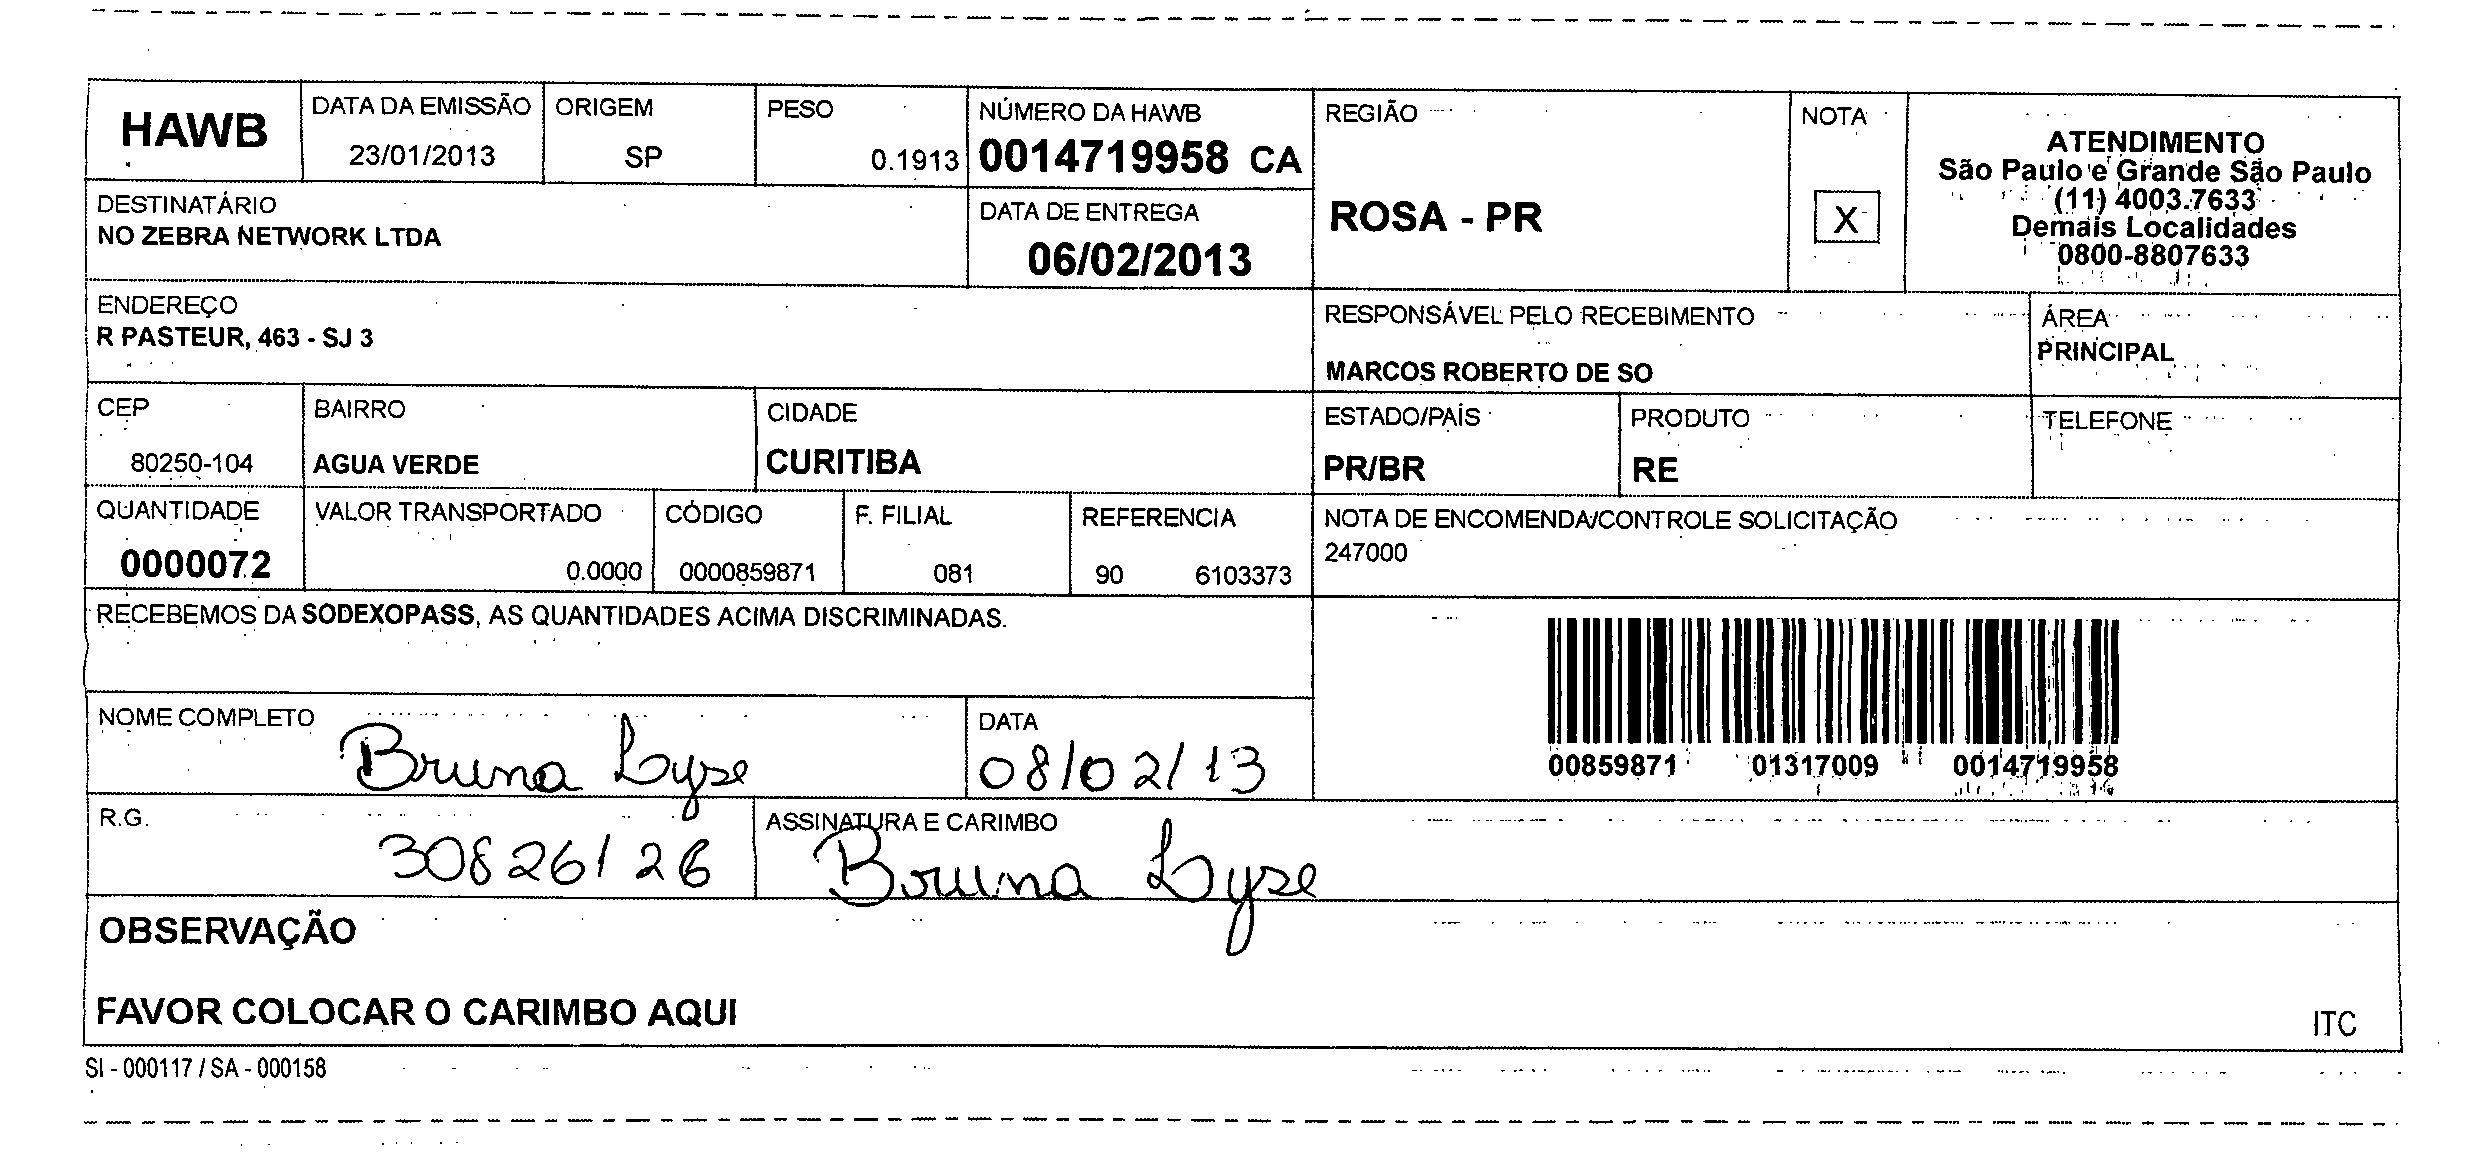 HAWB
DATA DA EMISSÃO
23/01/2013
ORIGEM
SP
PESO
0.1913
NÚMERO DA HAWB
0014719958 CA
REGIÃO
ROSA - PR
NOTA
X
ATENDIMENTO
São Paulo e Grande São Paulo
(11) 4003.7633
Demais Localidades
0800-8807633
DESTINATÁRIO
NO ZEBRA NETWORK LTDA
DATA DE ENTREGA
06/02/2013
ENDEREÇO
R PASTEUR, 463 - SJ 3
RESPONSÁVEL PELO RECEBIMENTO
MARCOS ROBERTO DE SO
ÁREA
PRINCIPAL
CEP
80250-104
BAIRRO
AGUA VERDE
CIDADE
CURITIBA
ESTADO/PAÍS
PR/BR
PRODUTO
RE
TELEFONE
QUANTIDADE
0000072
VALOR TRANSPORTADO
0.0000
CÓDIGO
0000859871
F. FILIAL
081
REFERENCIA
90 6103373
NOTA DE ENCOMENDA/CONTROLE SOLICITAÇÃO
247000
RECEBEMOS DA SODEXOPASS, AS QUANTIDADES ACIMA DISCRIMINADAS.
00859871 01317009 0014719958
NOME COMPLETO
Bruna Lyse
DATA
08/02/13
R.G.
30826126
ASSINATURA E CARIMBO
Bruna Lyse
OBSERVAÇÃO
FAVOR COLOCAR O CARIMBO AQUI
ITC
SI - 000117 / SA - 000158